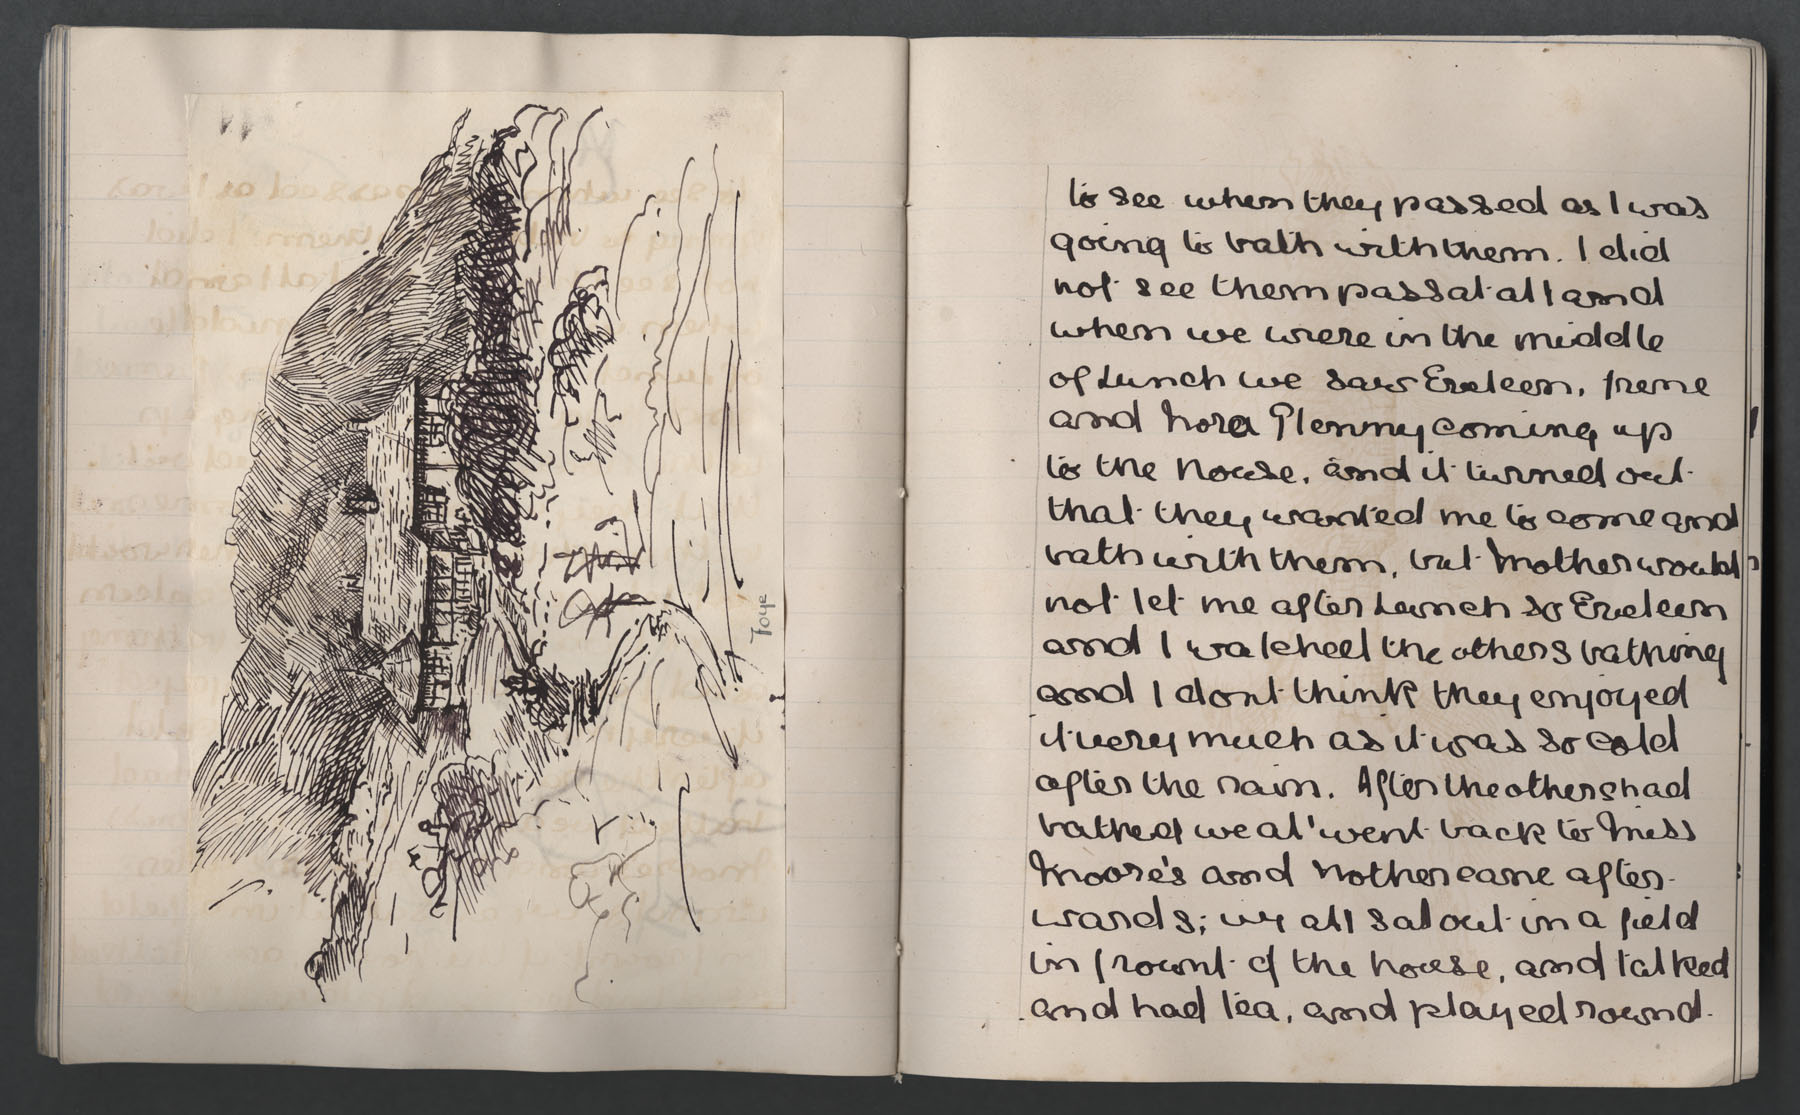 Toye
to see when they passed as I was
going to bath with them. I did
not see them pass at all and
when we were in the middle
of lunch we saw Eveleen, Irene
and Nora Glenny coming up
to the house, and it turned out
that they wanted me to come and
bath with them, but Mother would
not let me after lunch so Eveleen
and I watched the others bathing
and I dont think they enjoyed
it very much as it was so cold
after the rain. After the others had
bathed we all went back to Miss
Moore's and Mother came after-
wards; we all sat out in a field
in frount of the house, and talked
and had tea, and played round.